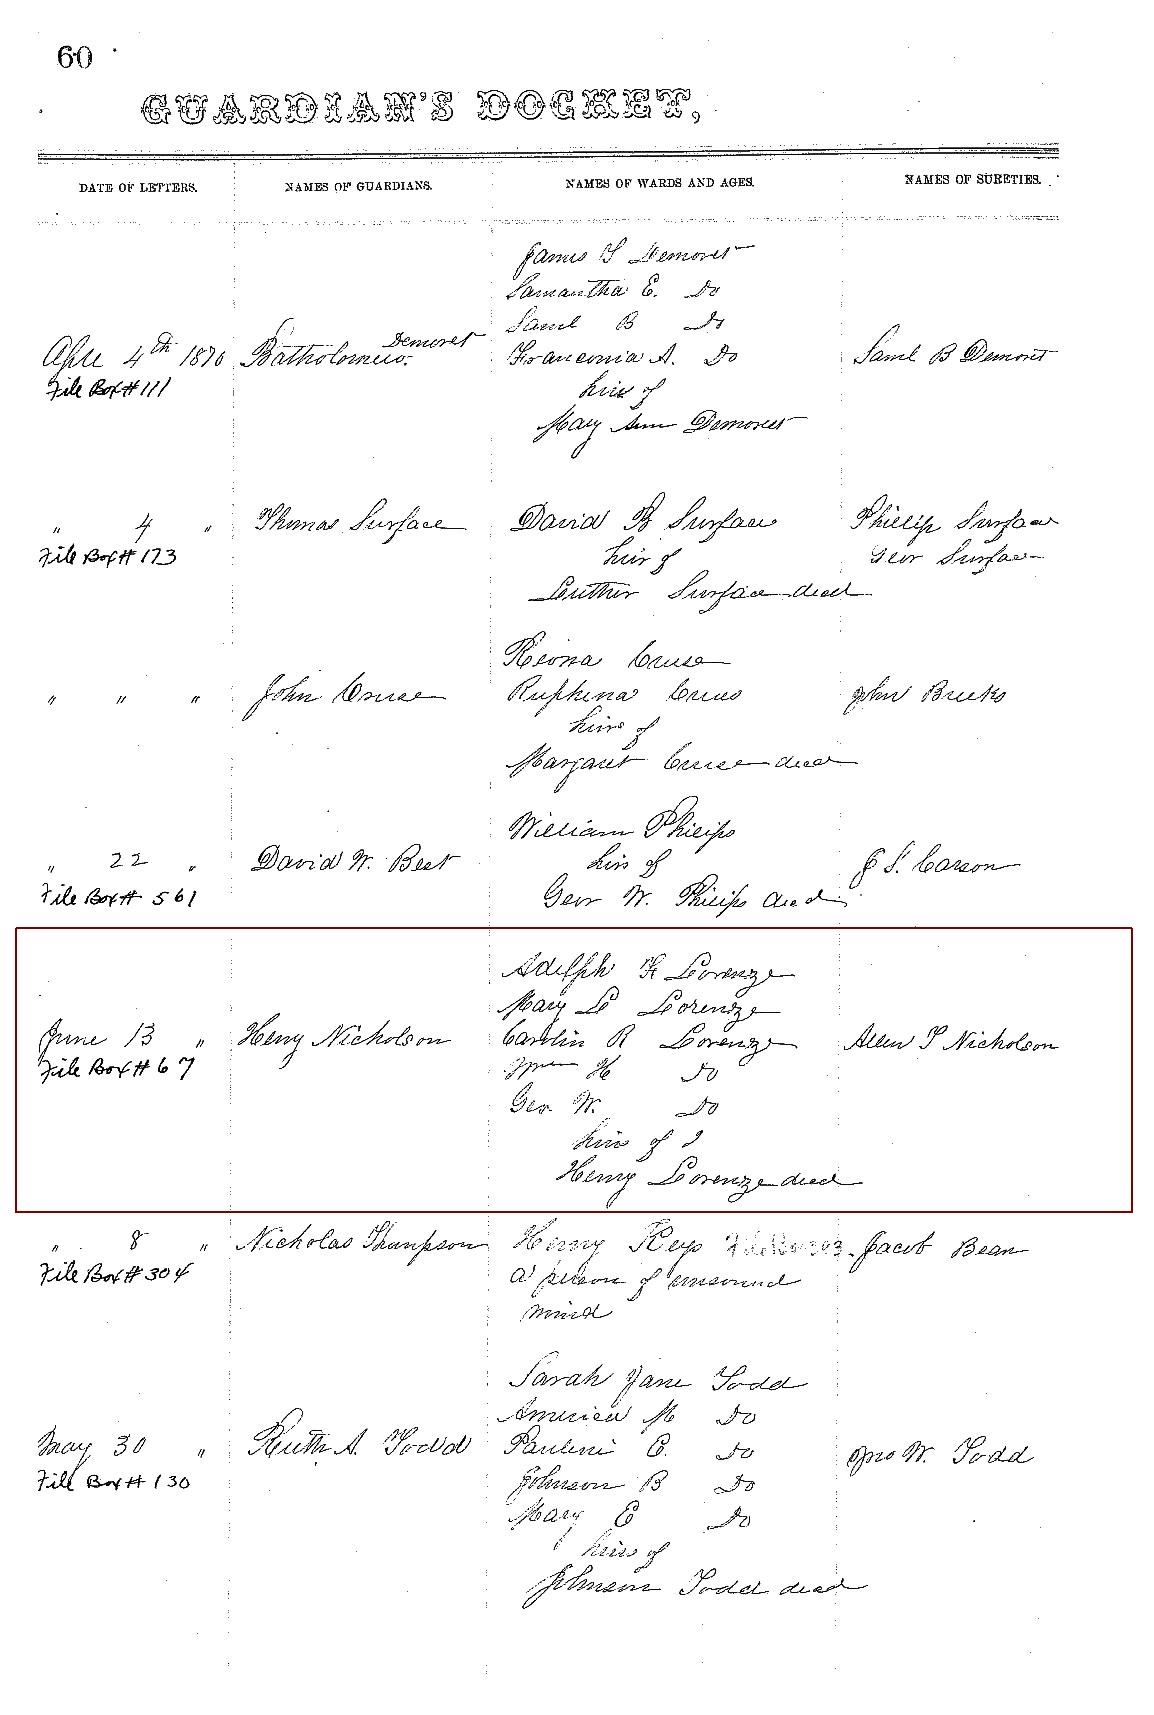 60
GUARDIAN'S DOCKET,
DATE OF LETTERS. NAMES OF GUARDIANS. NAMES OF WARDS AND AGES. NAMES OF SURETIES.
James S Demoret
Samantha E. Do
Saml B Do
Aprl 4th 1870 Bartholomew Demoret Franconia A. Do Saml B Demoret
File Box # 111 heirs of
Mary Ann Demoret
" 4 " Thomas Surface David B Surface Phillip Surface
File Box # 173 heir of Geor Surface
Luther Surface decd
Reona Cruse
" " " John Cruse Ruphena Cruse John Breeks
heirs of
Margaret Cruse decd
William Philips
" 22 " David W. Best heir of J S. Carson
File Box # 561 Geor W. Philips decd
Adolph F Lorenze
Mary L Lorenze
June 13 " Henry Nicholson Carolin R Lorenze Allen T Nicholson
File Box # 67 Wm H Do
Geo. W. Do
heirs of
Henry Lorenze decd
" 8 " Nicholas Thompson Henry Keys File Box 303 Jacob Bean
File Box # 304 a person of unsound
mind
Sarah Jane Todd
America M Do
May 30 " Ruth A. Todd Paulene C. Do Jno W. Todd
File Box # 130 Johnson B Do
Mary E Do
heirs of
Johnson Todd decd